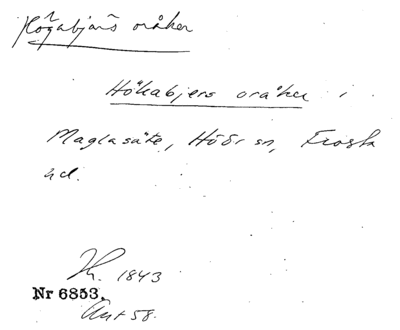 Högabjärs oråker
Hökabjers oråker i
Maglasäte, Höör sn, Frosta
hd.
1843
Nr 6853.
Ant 58.